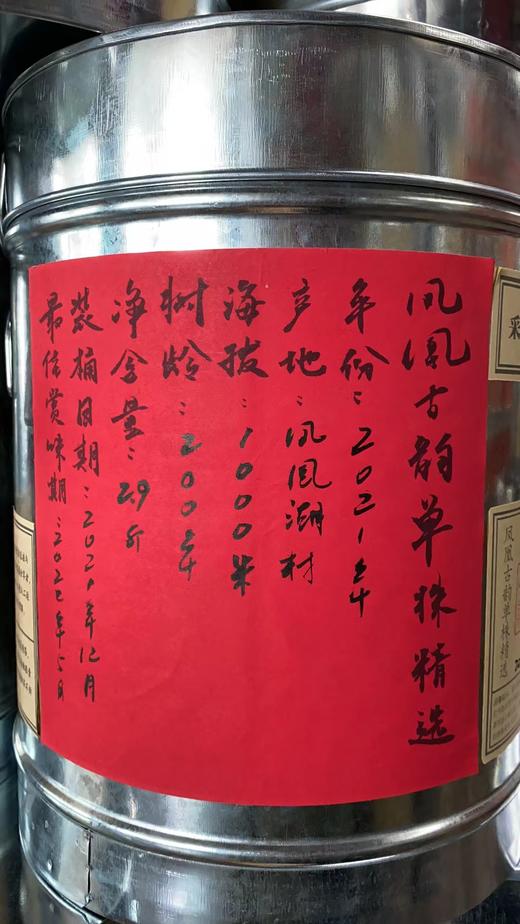 凤凰古韵单株精选
年份：2021年
产地：凤凰湖村
海拔：1000米
树龄：200年
净含量：29斤
装桶日期：2021年12月
最佳赏味期：2022年5月
凤凰古韵单株精选